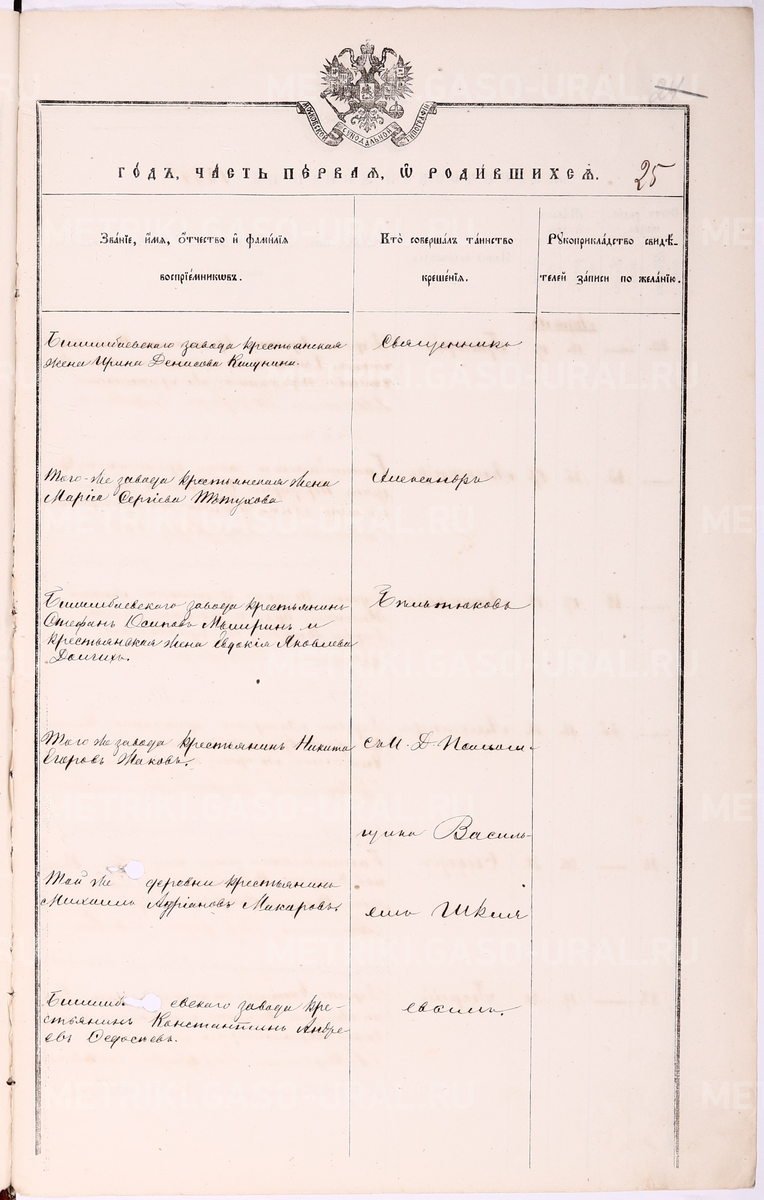 МОСКОВСКОЙ СѴНОДАЛЬНОЙ ТИПОГРАФІИ
24
ГОДЪ, ЧАСТЬ ПЕРВАЯ, Ѿ РОДИВШИХСЯ.
25
Званіе, имя, отчество и фамилія воспріемниковъ.
Кто совершалъ таинство крещенія.
Рукоприкладство свидѣтелей записи по желанію.
Билимбаевскаго завода крестьянская
жена Ирина Денисова
Священникъ
Того-же завода крестьянская жена
Марія Сергіева Пѣтухова
Александръ
Билимбаевскаго завода крестьянинъ
Стефанъ Осиповъ Мымринъ и
крестьянская жена Евдокія Яковлева
Долгихъ.
Бѣльтюковъ
Того же завода крестьянинъ Никита
Егоровъ Жаковъ.
съ И. Д. Псалом-
щика Василь-
Той же деревни крестьянинъ
Михаилъ Адріановъ Макаровъ
емъ Шкля
Билимбаевскаго завода кре-
стьянинъ Константинъ Андре-
евъ Федосѣевъ.
евымъ.
METRIKI.GASO-URAL.RU